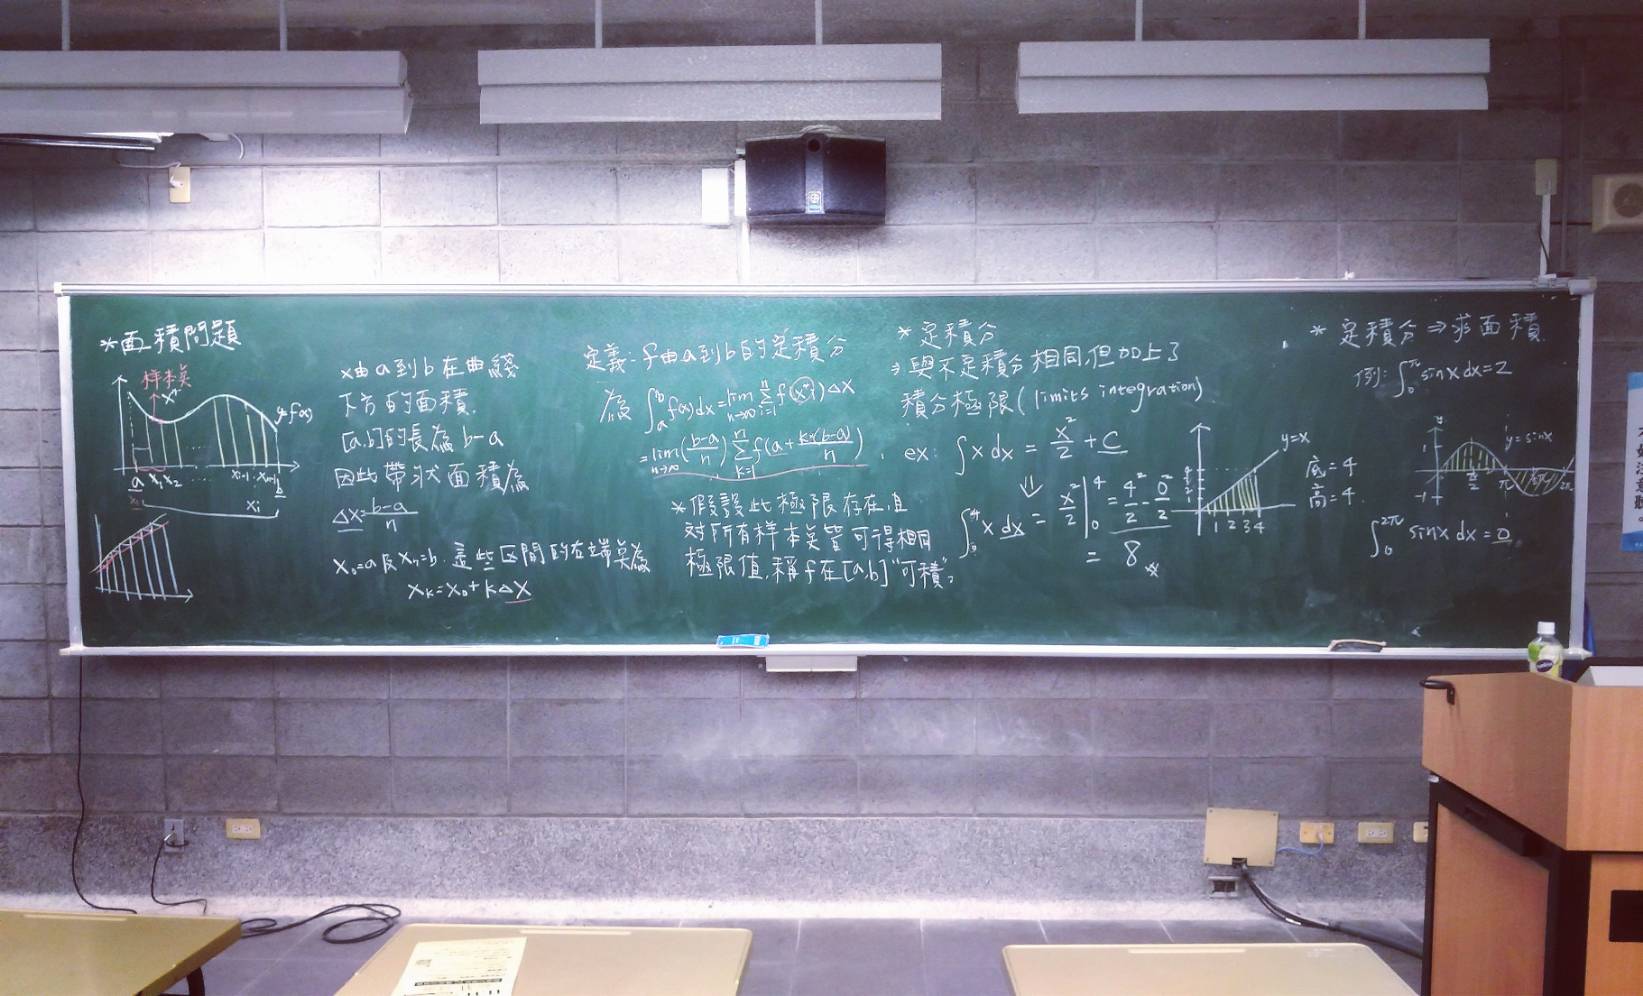 *面積問題
样本點
x₁*
y=f(x)
a x₁ x₂
xᵢ₋₁ xᵢ₊₁
b
x₀
xᵢ
x由a到b在曲綫
下方的面積.
[a,b]的長為b-a
因此帶狀面積為
△x=\frac{b-a}{n}
x₀=a及xₙ=b.這些区間的右端點為
xₖ=x₀+k△x
定義:f由a到b的定積分
為 ∫_a^b f(x)dx=lim_{n→∞} ∑_{i=1}^n f(xᵢ*)△x
=lim_{n→∞}(\frac{b-a}{n}) ∑_{k=1}^n f(a+\frac{k*(b-a)}{n})
*假設此極限存在,且
對所有样本點皆可得相同
極限值,稱f在[a,b]"可積"。
*定積分
⇒與不定積分相同,但加上了
積分極限(limits integration)
ex: ∫x dx = \frac{x²}{2} + C
⇓
∫_0^4 x dx = \frac{x²}{2}|_0^4 = \frac{4²}{2} - \frac{0²}{2}
= 8
y=x
4
3
2
1
1 2 3 4
底=4
高=4
*定積分⇒求面積
例: ∫_0^π sinx dx=2
y
y=sinx
1
\frac{π}{2} π 2π
-1
∫_0^{2π} sinx dx = 0